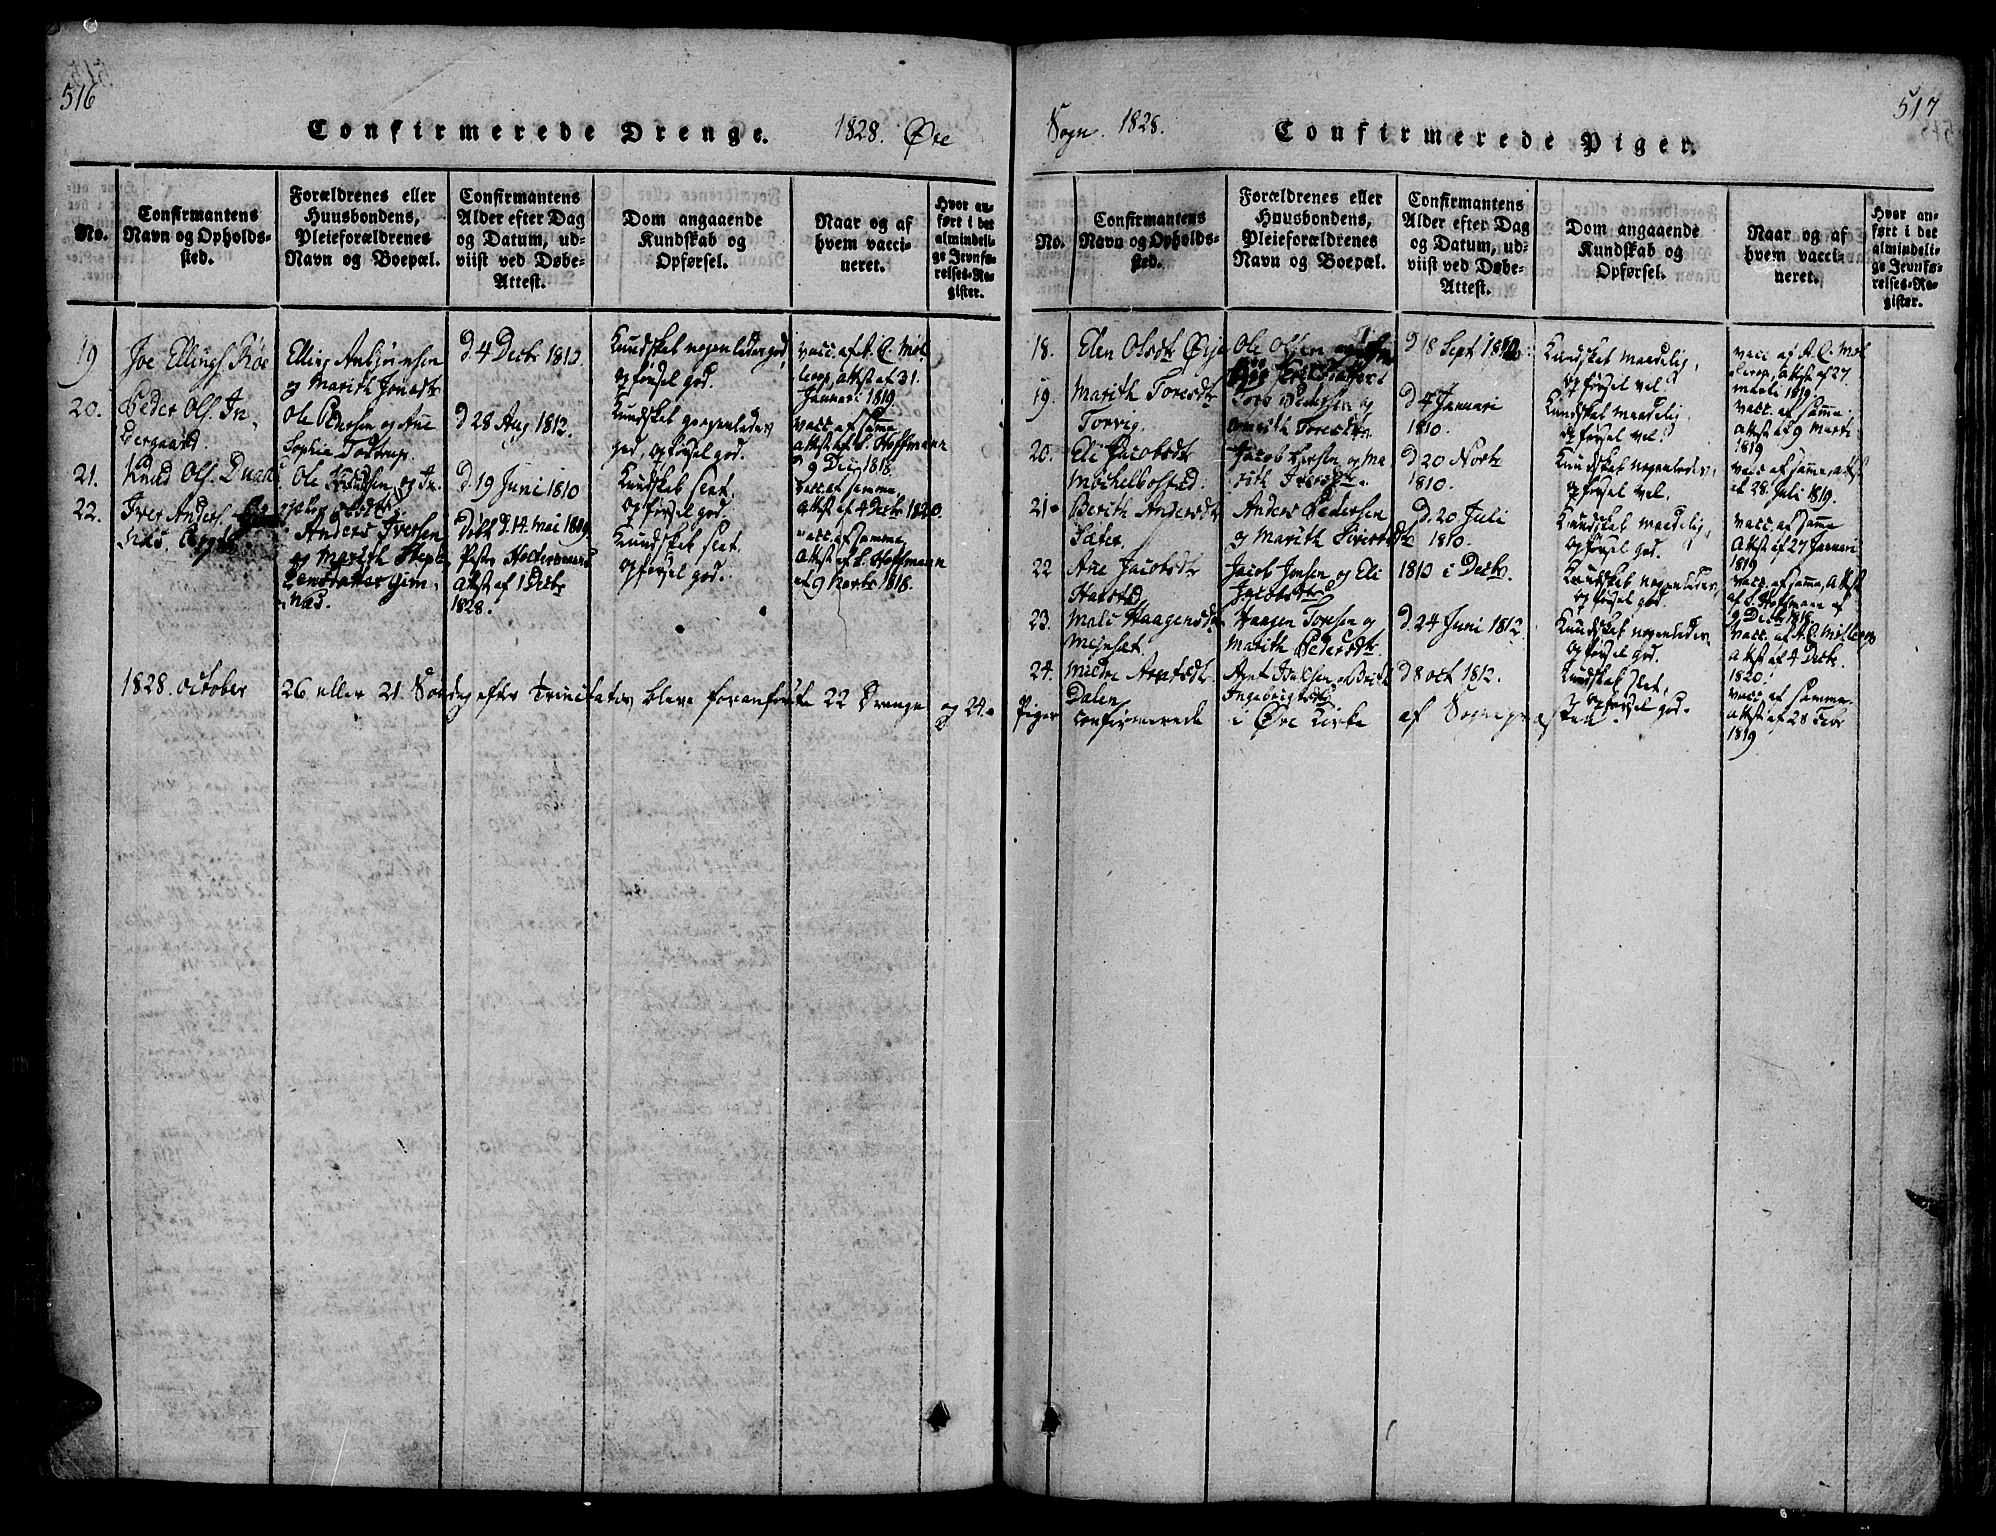 516
Confirmerede Drenge. 1828. Øre
No.
Confirmantens
Navn og Opholds-
sted.
Forældrenes eller
Huusbondens,
Pleieforældrenes
Navn og Boepæl.
Confirmantens
Alder efter Dag
og Datum, ud-
viist ved Døbe-
Attest.
Dom angaaende
Kundskab og
Opførsel.
Naar og af
hvem vacci-
neret.
Hvor an-
ført i det
almindeli-
ge Jevnfø-
relses-Re-
gister.
19
Joe Ellings. Røe
Elling Anbjørnsen
og Marith Jonsdtr
d 4 Decbr 1813
Kundskab nogenledes god,
opførsel god.
vacc. af A. O. Møl
lerop, attst af 31.
Januari 1819
20.
Peder Ols. In-
dergaard
Ole Pedersen og Ane
Sophie Tostrup.
d 28 Aug 1812.
Kundskab nogenledes
god, opførsel god.
vacc af samme
attst af L. Hoffmann
d 9 Dec 1818.
21.
Knud Ols.
Ole Knudsen og In-
d 19 Juni 1810
Kundskab slet,
opførsel god.
vacc. af samme,
attst af 4 Decbr 1820.
22.
Iver Anders.
Anders Iversen
og Marith Steph
ensdatter Gim-
næs.
Døbt d. 14. Mai 1809
attst af 1 Decbr
1828.
Kundskab slet
opførsel god.
vacc. af samme,
Attst af L. Hoffmann
af 9 Novbr 1818.
1828. october 26 eller 21. Søndag efter Trinitatis bleve foranførte 22 Drenge og 24.
517
Sogn. 1828. Confirmerede Piger.
No.
Confirmantens
Navn og Opholds-
sted.
Forældrenes eller
Huusbondens,
Pleieforældrenes
Navn og Boepæl.
Confirmantens
Alder efter Dag
og Datum, ud-
viist ved Døbe-
Attest.
Dom angaaende
Kundskab og
Opførsel.
Naar og af
hvem vacci-
neret.
Hvor an-
ført i det
almindeli-
ge Jevnfø-
relses-Re-
gister.
18.
Elen Olsdtr Øye
Ole Olsen og
d 18 Sept
Kundskab maadelig,
opførsel vel.
vacc af A. O. Møl
lerop, attst af 27
1819.
19.
Marith Toresdtr
Torvig.
Tore Pedersen og
Marith Toresdtr.
d 4 Januari
1810.
Kundskab maadelig
opførsel vel.
vacc. af samme.
Attst af 9 Marti
1819
20.
Eli Jacobsdtr
Møchelbostad.
Jacob Larsen og Ma
rith Iversdtr.
d 20 Novbr
1810.
Kundskab nogenledes,
opførsel vel.
vacc af samme, attst
af 28. Juli 1819.
21.
Berith Andersdtr
Sæter
Anders Pedersen
og Marith Siversdtr
d. 20 Juli
1810.
Kundskab maadelig,
opførsel god.
vacc af samme
Attst af 27 Januari
1819
22
Ane Jacobsdtr
Harstad
Jacob Jonsen og Eli
Jacobsdtr
1813 i Decbr.
Kundskab nogenledes,
opførsel god.
vacc. af samme, Attst
af L. Hoffmann af
9 Decbr 1818.
23.
Mali Haagensdtr
Meisæt.
Haagen Topsen og
Marith Pedersdtr
d. 24 Juni 1812
Kundskab nogenledes
opførsel god.
vacc. af A. O. Møllerop
attst af 4 Decbr.
1820.
24.
Mildri Arntsdtr
Dalen
Arnt Isaksen og Brith
Ingebrigtsdtr
d 8 oct 1812.
Kundskab slet,
opførsel god.
vacc af samme
attst af 28 Febr
1819
Piger confirmerede i Øre Kirke af Sognepræsten.